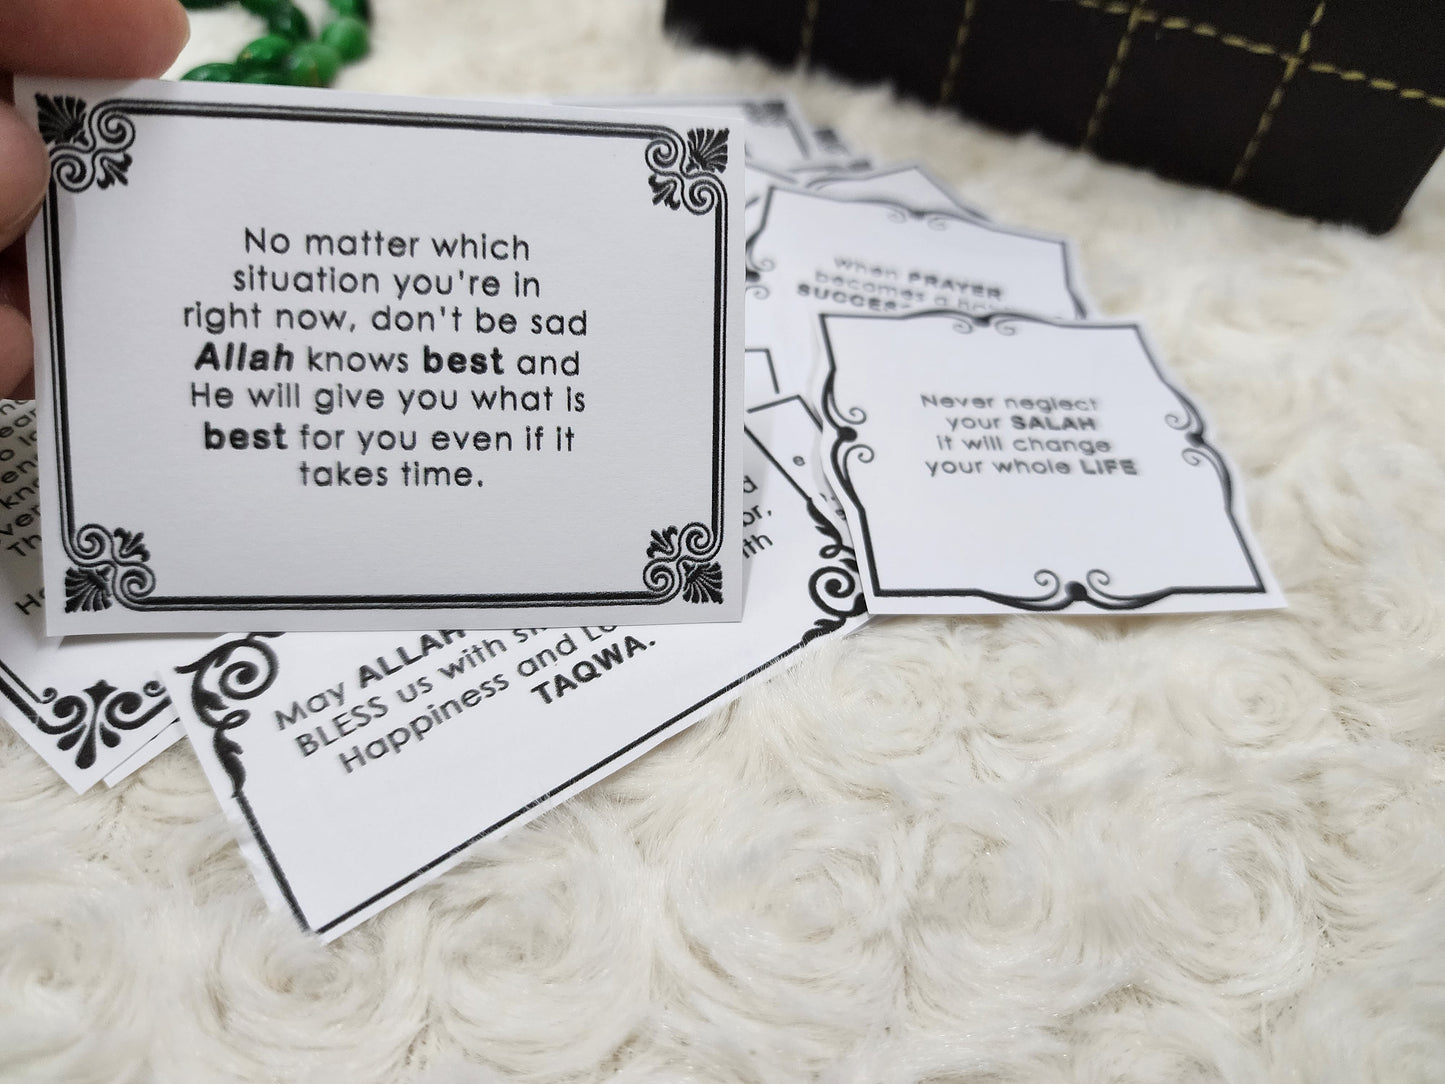 No matter which
situation you're in
right now, don't be sad
Allah knows best and
He will give you what is
best for you even if it
takes time.
When PRAYER
becomes a
Never neglect
your SALAH
it will change
your whole LIFE
May ALLAH
BLESS us with
Happiness and
TAQWA.